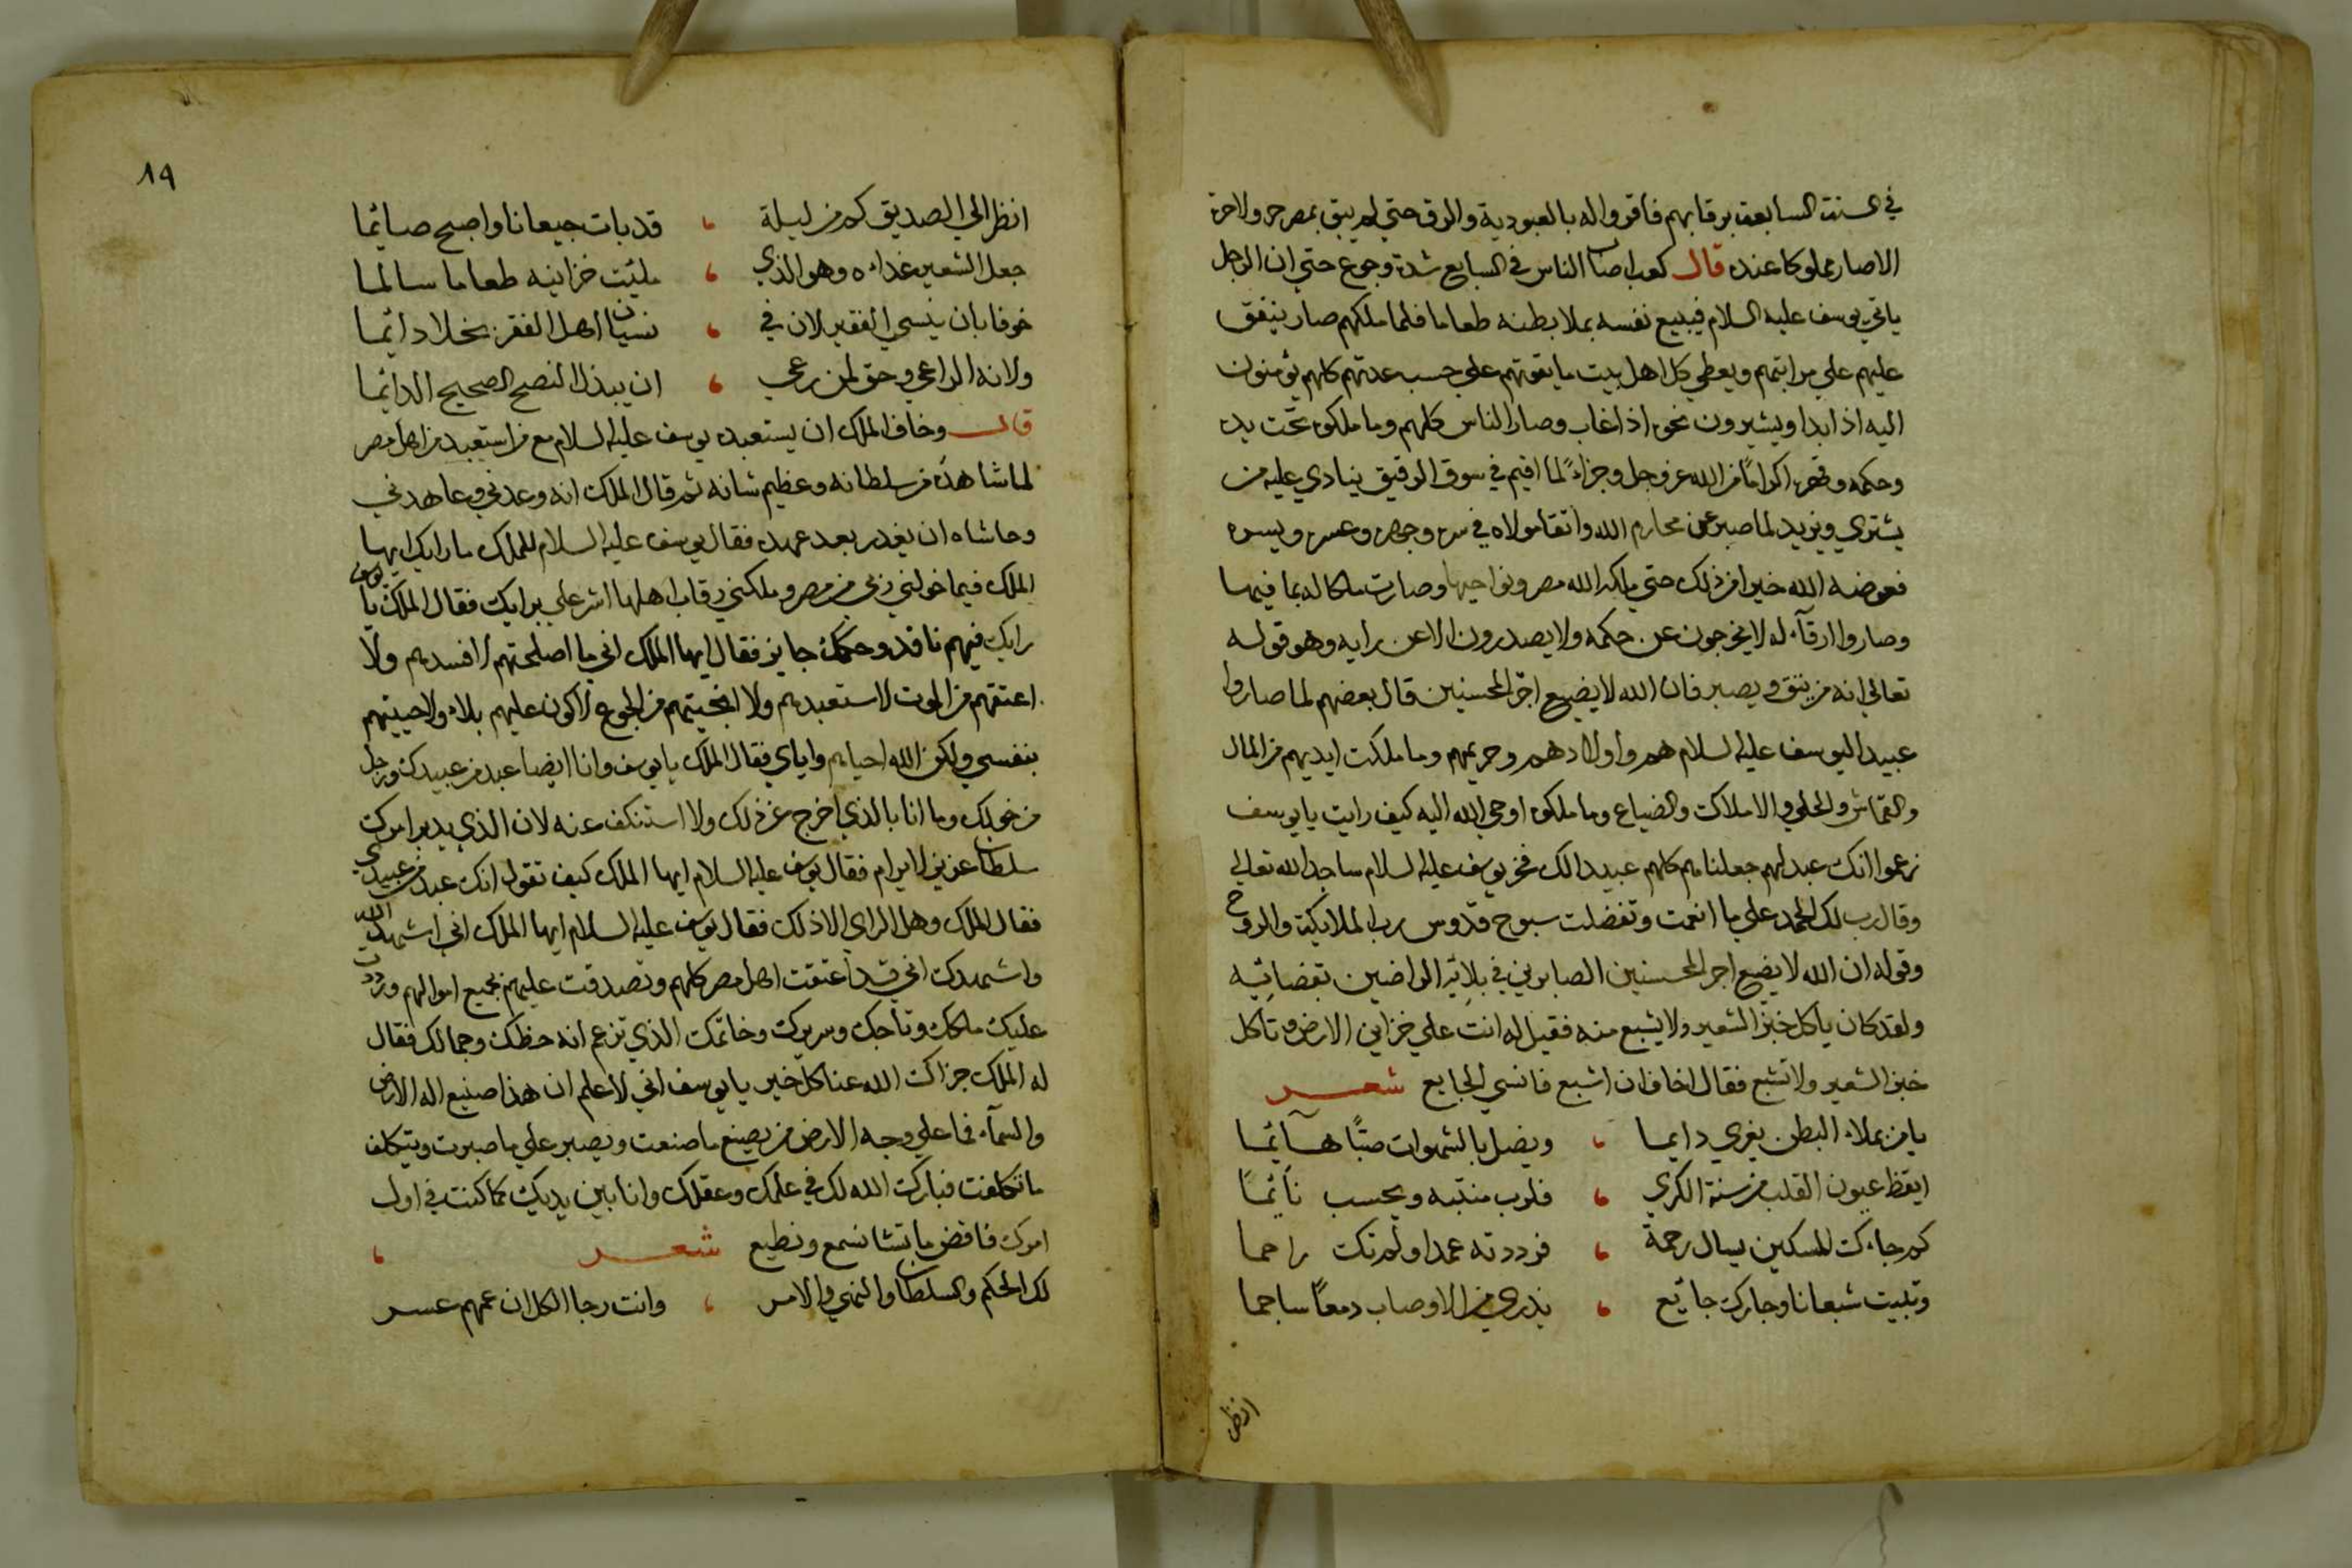 في السنة السابعة برقابهم فاقروا له بالعبودية والرق حتي لم يبق بمصر حر ولا حرة
الا صار مملوكا عنده قال كعب اصاب الناس في السابع شدة وجوع حتي ان الرجل
ياتي يوسف عليه السلام فيبيع نفسه بملا بطنه طعاما فلما ملكهم صار ينفق
عليهم علي مراتبهم ويعطي كل اهل بيت ما يقوتهم علي حسب عدتهم كلهم يؤمنون
اليه اذا بدا ويشيرون نحوه اذا غاب وصار الناس كلهم وما ملكوه تحت يده
وحكمه وقهره اكراما من الله عز وجل وجزاءً لما اقيم في سوق الرقيق ينادي عليه من
يشتري ويزيد لما صبر عن محارم الله واتقا مولاه في سره وجهره وعسره ويسره
فعوضه الله خيرا من ذلك حتي ملكه الله مصر ونواحيها وصارت ملكا له بما فيها
وصاروا ارقآء له لا يخرجون عن حكمه ولا يصدرون الا عن رايه وهو قوله
تعالي انه من يتق ويصبر فان الله لا يضيع اجر المحسنين قال بعضهم لما صاروا
عبيدا ليوسف عليه السلام هم واولادهم وحريمهم وما ملكت ايديهم من المال
والقماش والحلي والاملاك والضياع وما ملكوه اوحي الله اليه كيف رايت يا يوسف
زعموا انك عبد لهم جعلناهم كلهم عبيدا لك فخر يوسف عليه السلام ساجدا لله تعالي
وقال رب لك الحمد علي ما انعمت وتفضلت سبوح قدوس رب الملايكة والروح
وقوله ان الله لا يضيع اجر المحسنين الصابرين في بلائه الراضين بقضائه
ولقد كان ياكل خبز الشعير ولا يشبع منه فقيل له انت علي خزاين الارض وتاكل
خبز الشعير ولا تشبع فقال اخاف ان اشبع فانسي الجايع شعر
يا من بملاء البطن يغري دايما ، ويضل بالشهوات صبًا هآئما
ايقظ عيون القلب من سنة الكري ، فلرب منتبه ويحسب نآئمًا
كم جاءك المسكين يسال رحمة ، فرددته عمدا ولم تك راحما
وتبيت شبعانا وجارك جائع ، يذري من الاوصاب دمعًا ساجما
انظر
١٩
انظر الي الصديق كم من ليلة ، قد بات جيعانا واصبح صائما
جعل الشعير غداءه وهو الذي ، مليت خزاينه طعاما سالما
خوفا بان ينسي الفقير لان في ، نسيان اهل الفقر بخلا دائما
ولانه الراعي وحق لمن رعي ، ان يبذل النصح الصحيح الدائما
قال وخاف الملك ان يستعبده يوسف عليه السلام مع من استعبد من اهل مصر
لما شاهده من سلطانه وعظيم شانه ثم قال الملك انه وعدني وعاهدني
وحاشاه ان يغدر بعد عهده فقال يوسف عليه السلام للملك ما رايك ايها
الملك فيما خولني ربي من مصر وملكني رقاب اهلها اشر علي برايك فقال الملك يا يوسف
رايك فيهم نافذ وحكمك جايز فقال ايها الملك اني ما اصلحتهم لافسدهم ولا
اعتقهم من الموت لاستعبدهم ولا انجيتهم من الجوع لاكون عليهم بلاء ولا حييتهم
بنفسي ولكن الله احياهم واياي فقال الملك يا يوسف وانا ايضا عبد من عبيدك ورجل
من خولك وما انا بالذي اخرج عن ذلك ولا استنكف عنه لان الذي يدبر امرك
سلطان عزيز لا يرام فقال يوسف عليه السلام ايها الملك كيف تقول انك عبد من عبيدي
فقال الملك وهل الراي الا ذلك فقال يوسف عليه السلام ايها الملك اني اشهد الله
واشهدك اني قد اعتقت اهل مصر كلهم وتصدقت عليهم بجميع اموالهم ورددت
عليك ملكك وتاجك وسريرك وخاتمك الذي تزعم انه حظك وجمالك فقال
له الملك جزاك الله عنا كل خير يا يوسف اني لا علم ان هذا صنيع اله الارض
والسمآء فما علي وجه الارض من يصنع ما صنعت ويصبر علي ما صبرت ويتكلف
ما تكلفت فبارك الله لك في علمك وعقلك وانا بين يديك كما كنت في اول
امرك فاقض ما تشا نسمع ونطيع شعر ،
لك الحكم والسلطان والنهي والامر ، وانت رجا الكل ان عمهم عسر